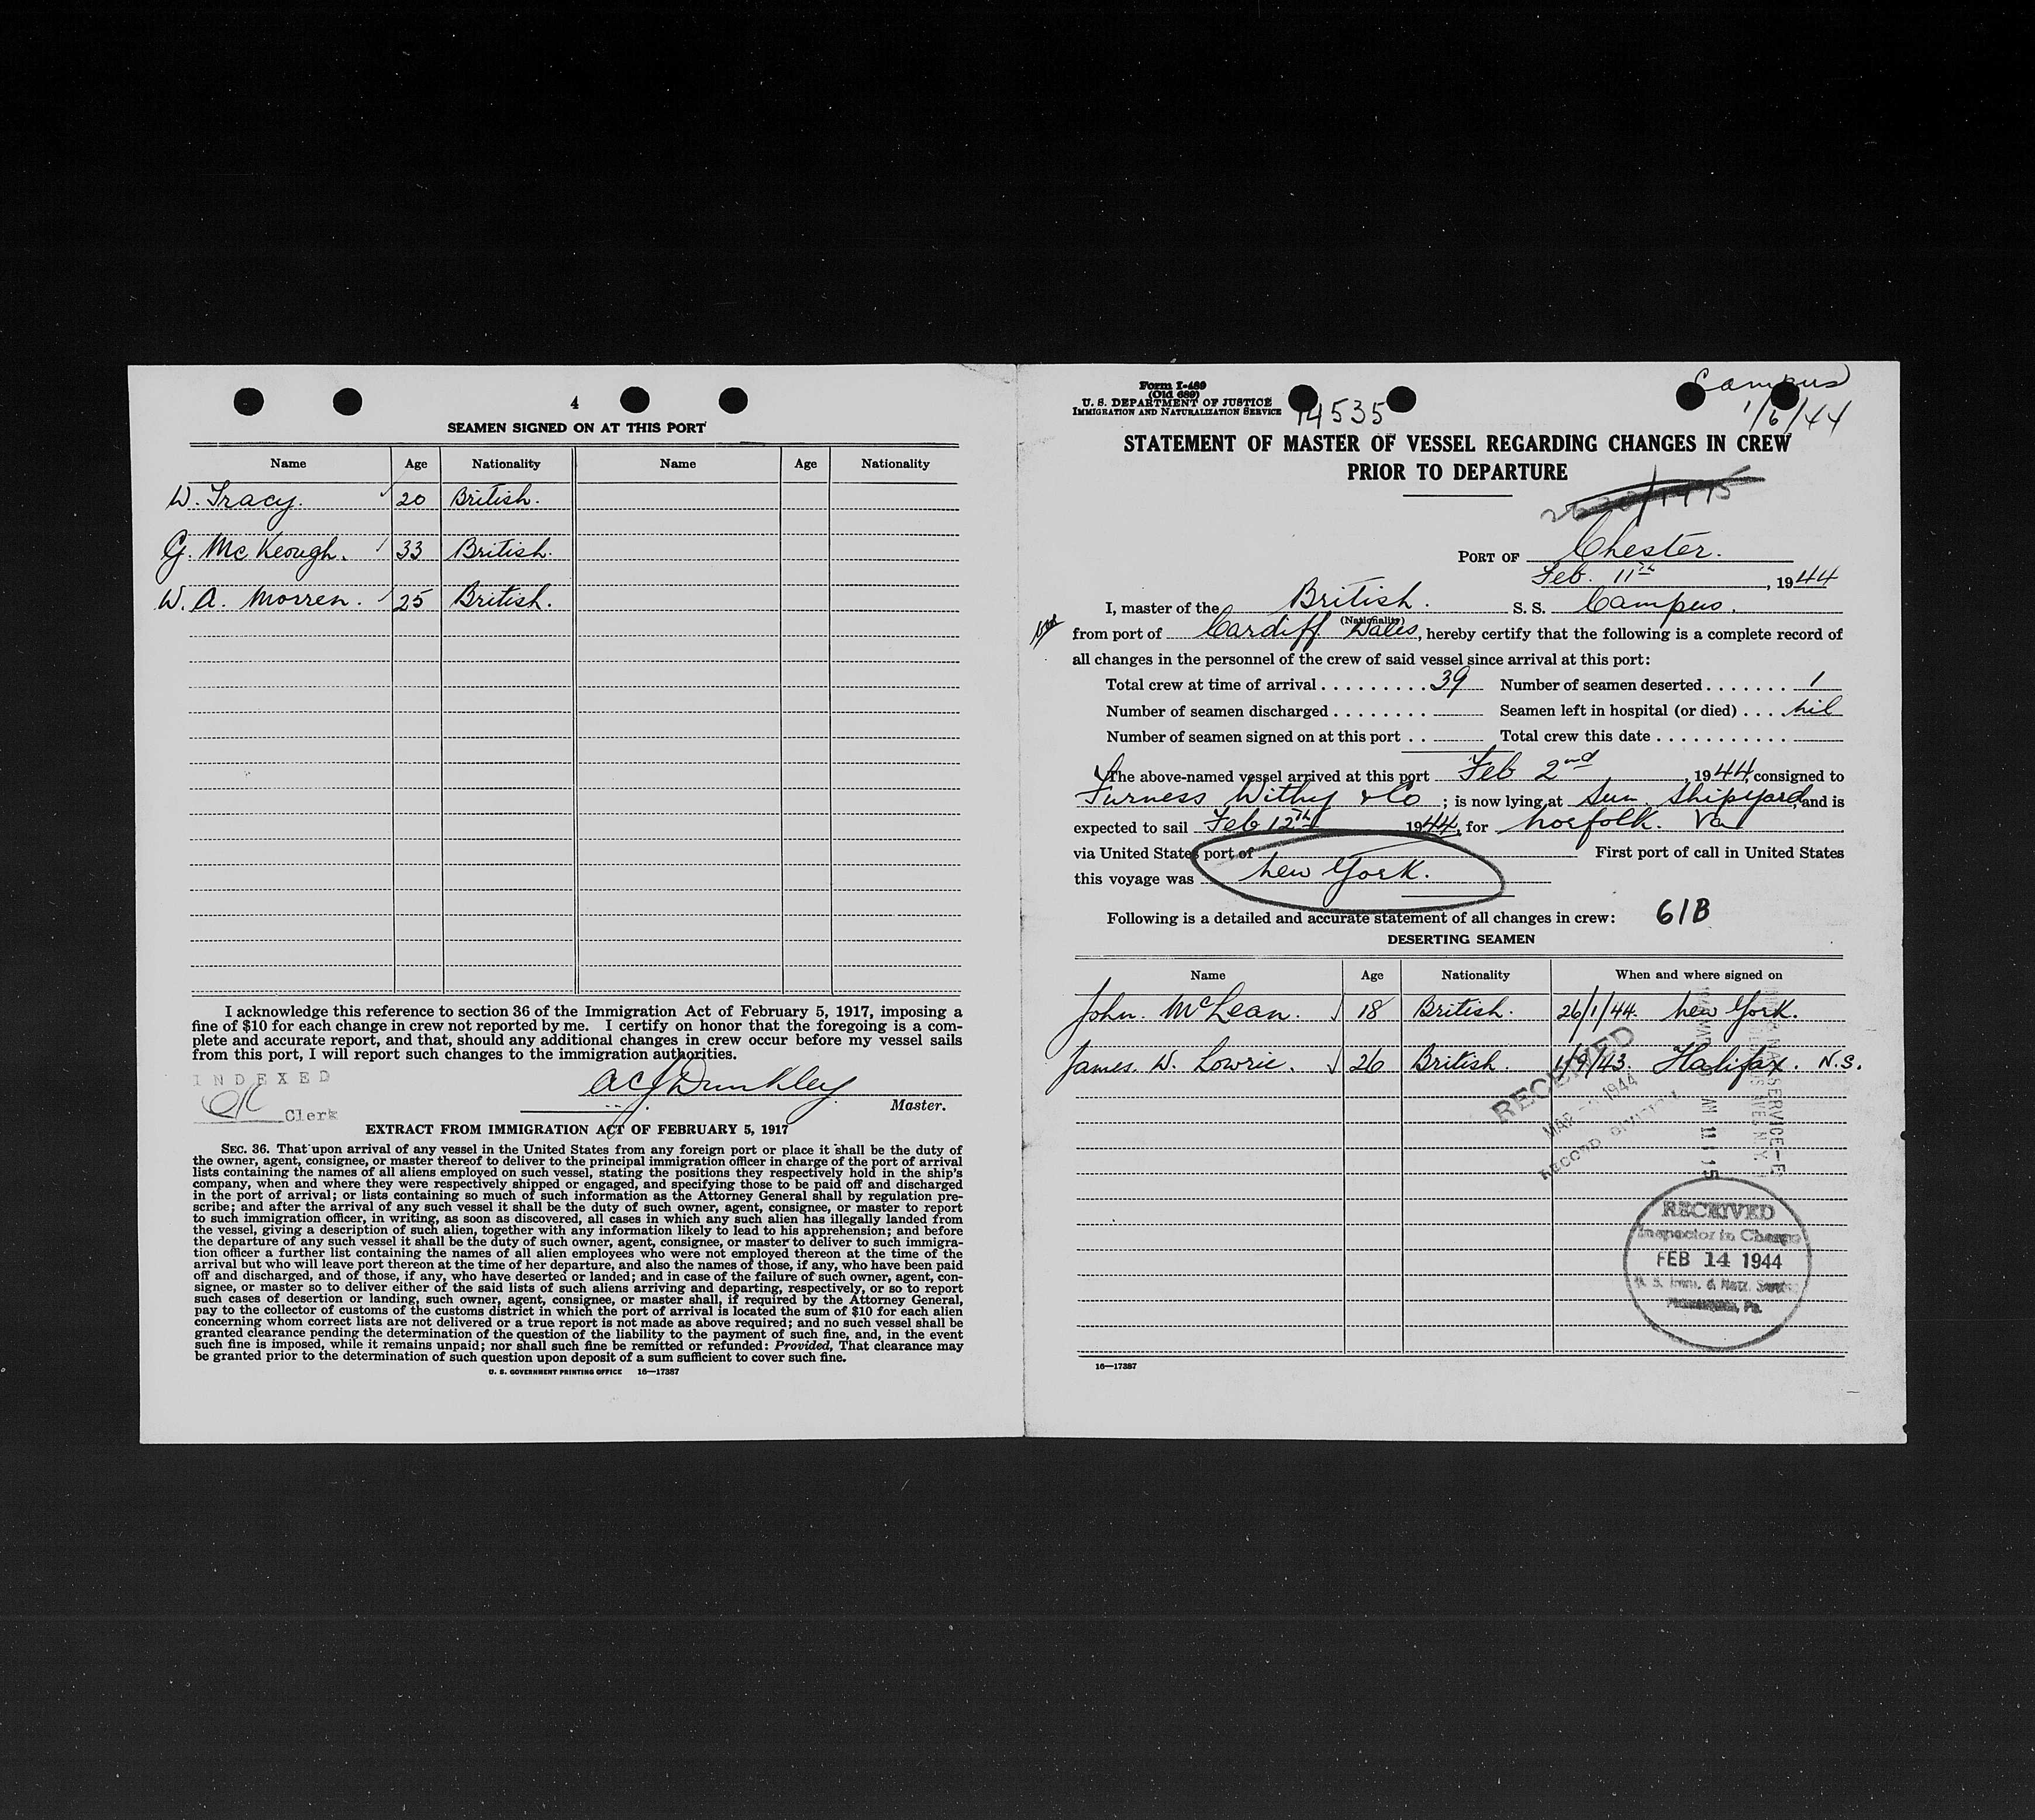 4
SEAMEN SIGNED ON AT THIS PORT
Name Age Nationality Name Age Nationality
W. Tracy. 20 British.
G. McKeough. 33 British.
W. A. Morren. 25 British.
I acknowledge this reference to section 36 of the Immigration Act of February 5, 1917, imposing a
fine of $10 for each change in crew not reported by me. I certify on honor that the foregoing is a com-
plete and accurate report, and that, should any additional changes in crew occur before my vessel sails
from this port, I will report such changes to the immigration authorities.
INDEXED
Clerk
ACJ Dunkley
Master.
EXTRACT FROM IMMIGRATION ACT OF FEBRUARY 5, 1917
SEC. 36. That upon arrival of any vessel in the United States from any foreign port or place it shall be the duty of
the owner, agent, consignee, or master thereof to deliver to the principal immigration officer in charge of the port of arrival
lists containing the names of all aliens employed on such vessel, stating the positions they respectively hold in the ship's
company, when and where they were respectively shipped or engaged, and specifying those to be paid off and discharged
in the port of arrival; or lists containing so much of such information as the Attorney General shall by regulation pre-
scribe; and after the arrival of any such vessel it shall be the duty of such owner, agent, consignee, or master to report
to such immigration officer, in writing, as soon as discovered, all cases in which any such alien has illegally landed from
the vessel, giving a description of such alien, together with any information likely to lead to his apprehension; and before
the departure of any such vessel it shall be the duty of such owner, agent, consignee, or master to deliver to such immigra-
tion officer a further list containing the names of all alien employees who were not employed thereon at the time of the
arrival but who will leave port thereon at the time of her departure, and also the names of those, if any, who have been paid
off and discharged, and of those, if any, who have deserted or landed; and in case of the failure of such owner, agent, con-
signee, or master so to deliver either of the said lists of such aliens arriving and departing, respectively, or so to report
such cases of desertion or landing, such owner, agent, consignee, or master shall, if required by the Attorney General,
pay to the collector of customs of the customs district in which the port of arrival is located the sum of $10 for each alien
concerning whom correct lists are not delivered or a true report is not made as above required; and no such vessel shall be
granted clearance pending the determination of the question of the liability to the payment of such fine, and, in the event
such fine is imposed, while it remains unpaid; nor shall such fine be remitted or refunded: Provided, That clearance may
be granted prior to the determination of such question upon deposit of a sum sufficient to cover such fine.
U. S. GOVERNMENT PRINTING OFFICE 16—17387
Form I-489
(Old 689)
U. S. DEPARTMENT OF JUSTICE
IMMIGRATION AND NATURALIZATION SERVICE
14535
Campus
1/6/44
STATEMENT OF MASTER OF VESSEL REGARDING CHANGES IN CREW
PRIOR TO DEPARTURE
PORT OF Chester.
Feb. 11th, 1944
I, master of the British. S. S. Campus.
(Nationality)
from port of Cardiff Wales, hereby certify that the following is a complete record of
all changes in the personnel of the crew of said vessel since arrival at this port:
Total crew at time of arrival . . . . . . . . . 39 Number of seamen deserted . . . . . . . 1
Number of seamen discharged . . . . . . . . Seamen left in hospital (or died) . . . . nil
Number of seamen signed on at this port . . Total crew this date . . . . . . . . . . .
The above-named vessel arrived at this port Feb 2nd, 1944, consigned to
Furness Withy & Co; is now lying at Sun Shipyard, and is
expected to sail Feb 12th 1944, for Norfolk. Va
via United States port of First port of call in United States
this voyage was New York.
Following is a detailed and accurate statement of all changes in crew: 61B
DESERTING SEAMEN
Name Age Nationality When and where signed on
John. McLean. 18 British. 26/1/44. New York.
James. W. Lowrie. 26 British. 1/9/43. Halifax. N.S.
RECEIVED
MAR 1944
RECORD
AM 11 15
RECEIVED
Inspector in Charge
FEB 14 1944
U. S. Imm. & Natz. Service
Philadelphia, Pa.
16—17387